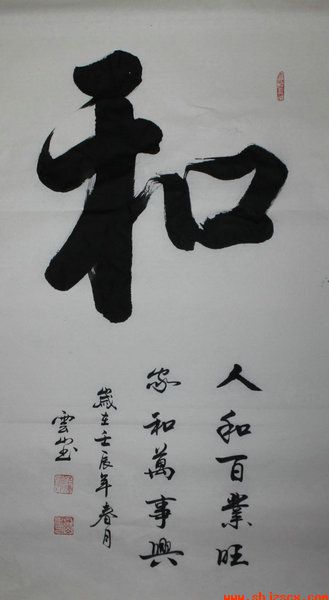 和
人和百業旺
家和萬事興
歲在壬辰年春月
雲
www.shjzscx.com